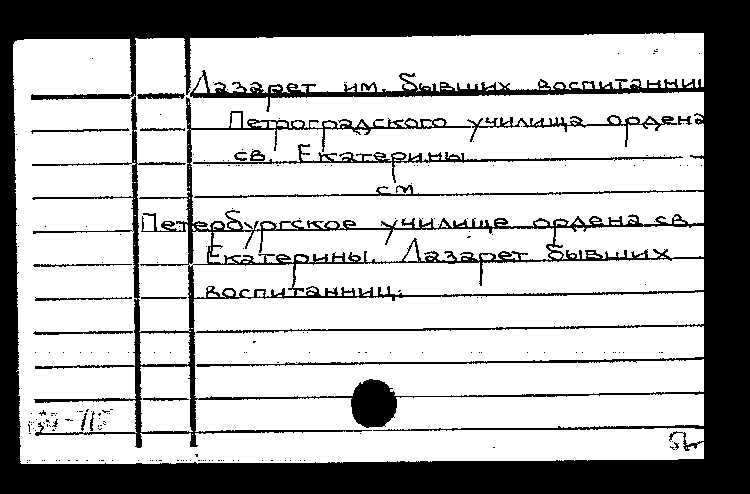 Лазарет им. бывших воспитанниц
Петроградского училища ордена
св. Екатерины
см
Петербургское училище ордена св.
Екатерины. Лазарет бывших
воспитанниц.